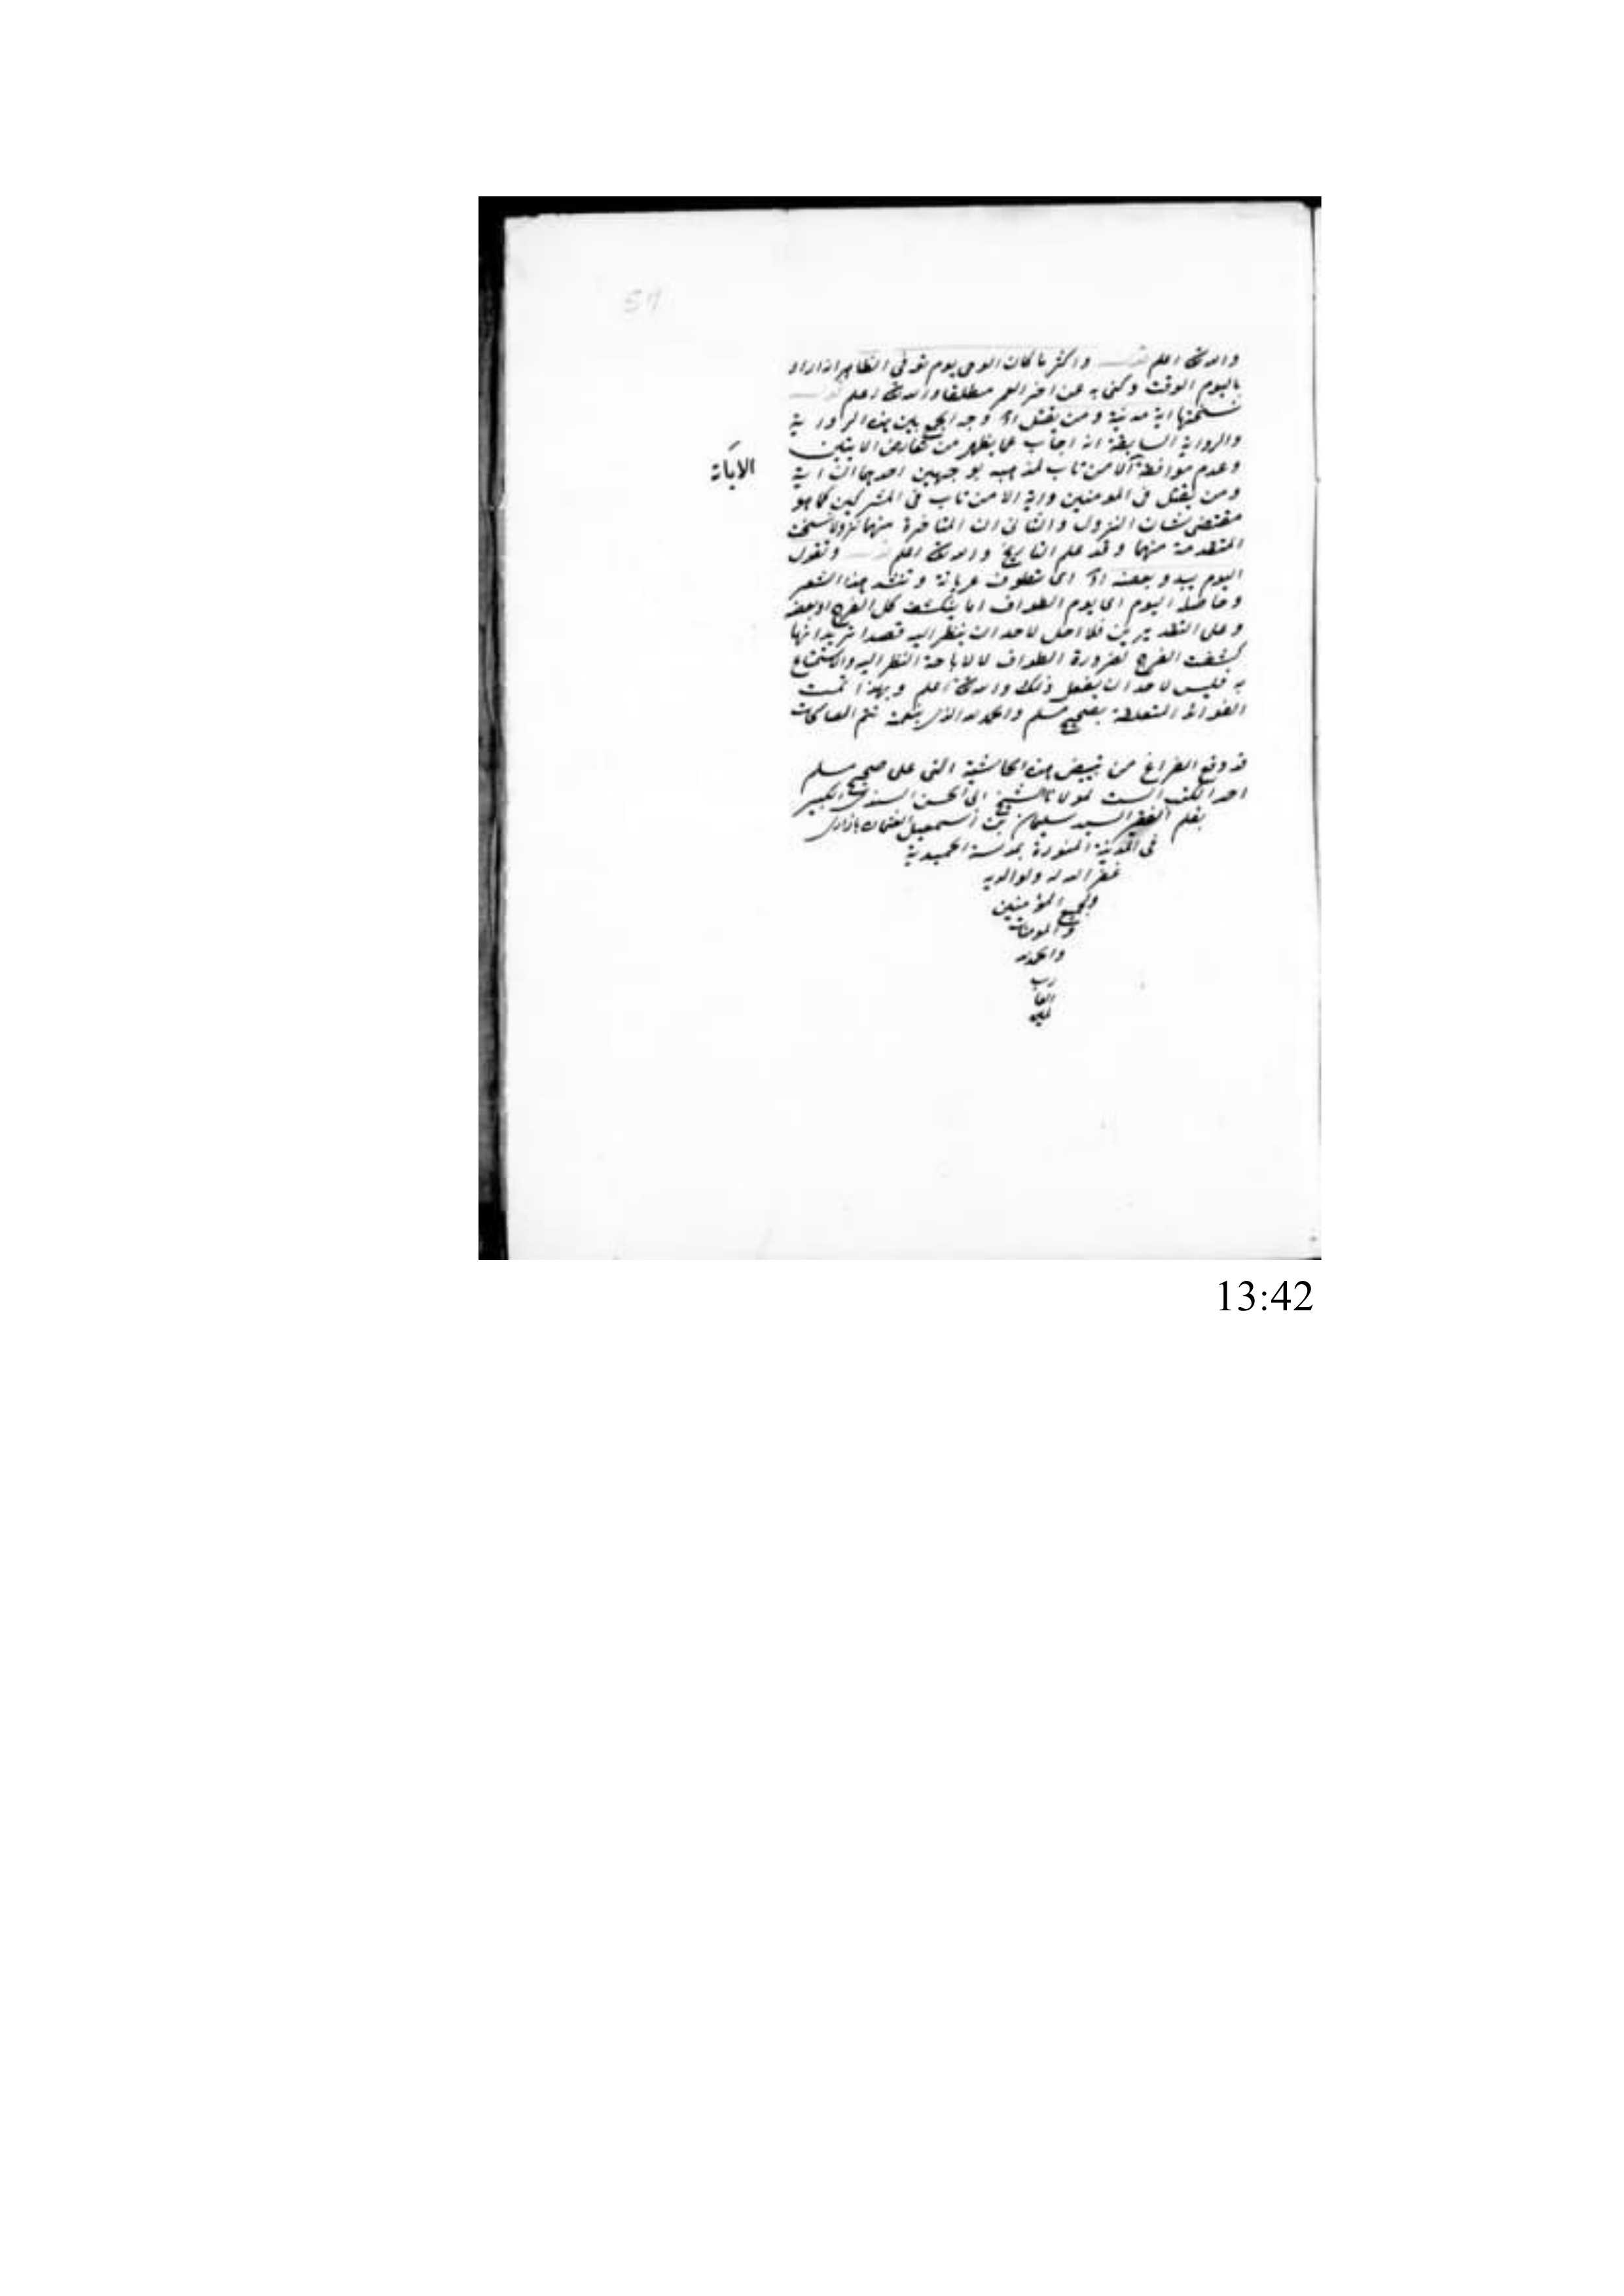 57
والله تع اعلم قوله واكثر ما كان الوحى يوم توفى الظاهر انه اراد
باليوم الوقت وكنى به عن اخر العمر مطلقا والله تع اعلم قوله
نسختها اية مدنية ومن يقتل اه وجه الجمع بين هذه الرواية
والرواية السابقة انه اجاب عما يظهر من تعارض الايتين
وعدم موافقة الا من تاب لمذهبه بوجهين احدهما ان اية
الاياة
ومن يقتل فى المومنين واية الا من تاب فى المشركين كما هو
مقتضى شان النزول والثانى ان المتاخرة منهما نزولا نسخت
المتقدمة منهما وقد علم التاريخ والله تع اعلم قوله وتقول
اليوم يبدو بعضه اه اى تطوف عريانة وتنشد هذا الشعر
وحاصله اليوم اى يوم الطواف اما ينكشف كل الفرج او بعضه
وعلى التقديرين فلا احل لاحد ان ينظر اليه قصدا تريد انها
كشفت الفرج لضرورة الطواف لا لاباحة النظر اليه والاستمتاع
به فليس لاحد ان يفعل ذلك والله تع اعلم وبهذا تمت
الفوائد المتعلقة بصحيح مسلم والحمد لله الذى بنعمته تتم الصالحات
قد وقع الفراغ من تبييض هذه الحاشية التى على صحيح مسلم
احد الكتب الست لمولانا الشيخ ابى الحسن السندى الكبير
بقلم الفقير السيد سليمان بن اسمعيل العثمان بازارى
فى المدينة المنورة بمدرسة الحميدية
غفر الله له ولوالديه
ولجميع المؤمنين
والمومنات
والحمد لله
رب
العا
لمين
13:42